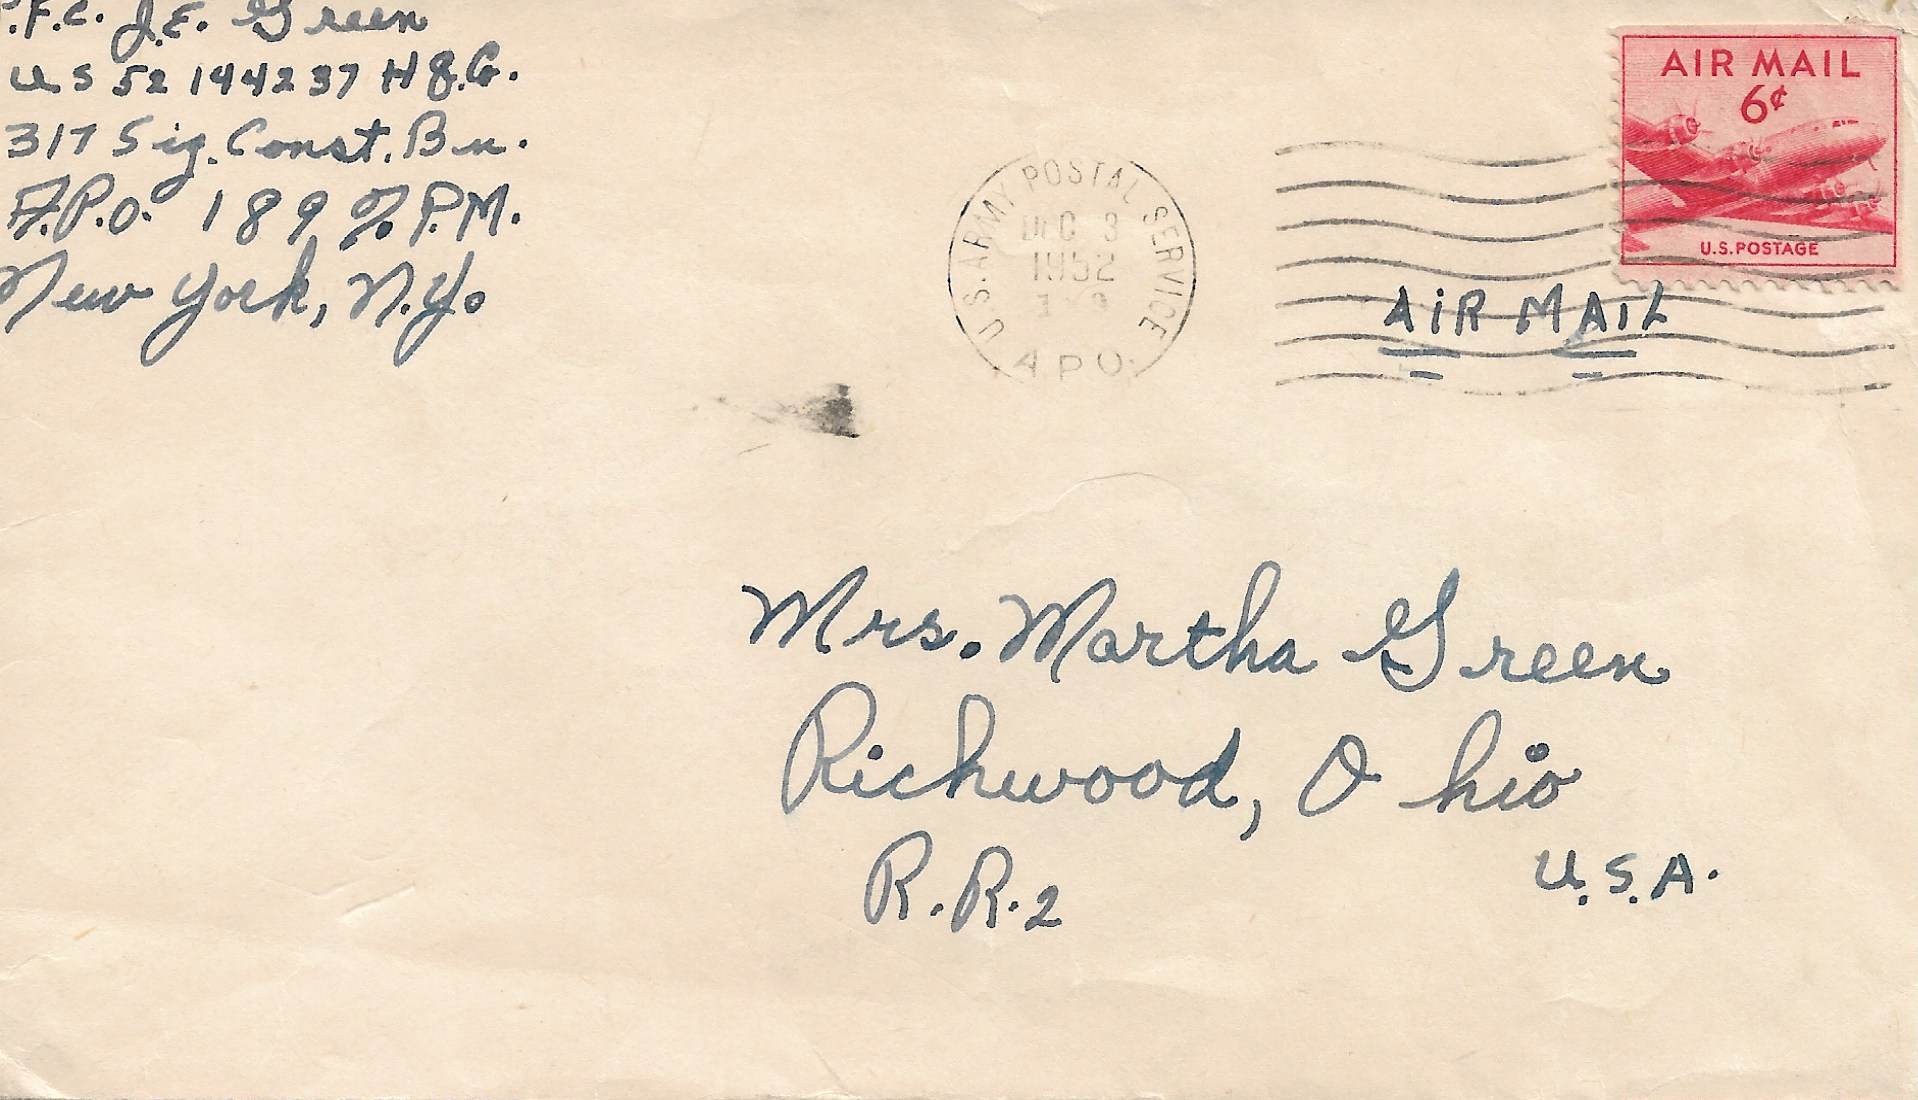 P.F.C. J.E. Green
US 52 144237 H&.C.
317 Sig. Const. Bn.
A.P.O. 189 % P.M.
New York, N.Y.
U.S. ARMY POSTAL SERVICE
DEC 3
1952
A P O
AIR MAIL
6¢
U.S. POSTAGE
AiR MAIL
Mrs. Martha Green
Richwood, Ohio
R.R. 2
U.S.A.